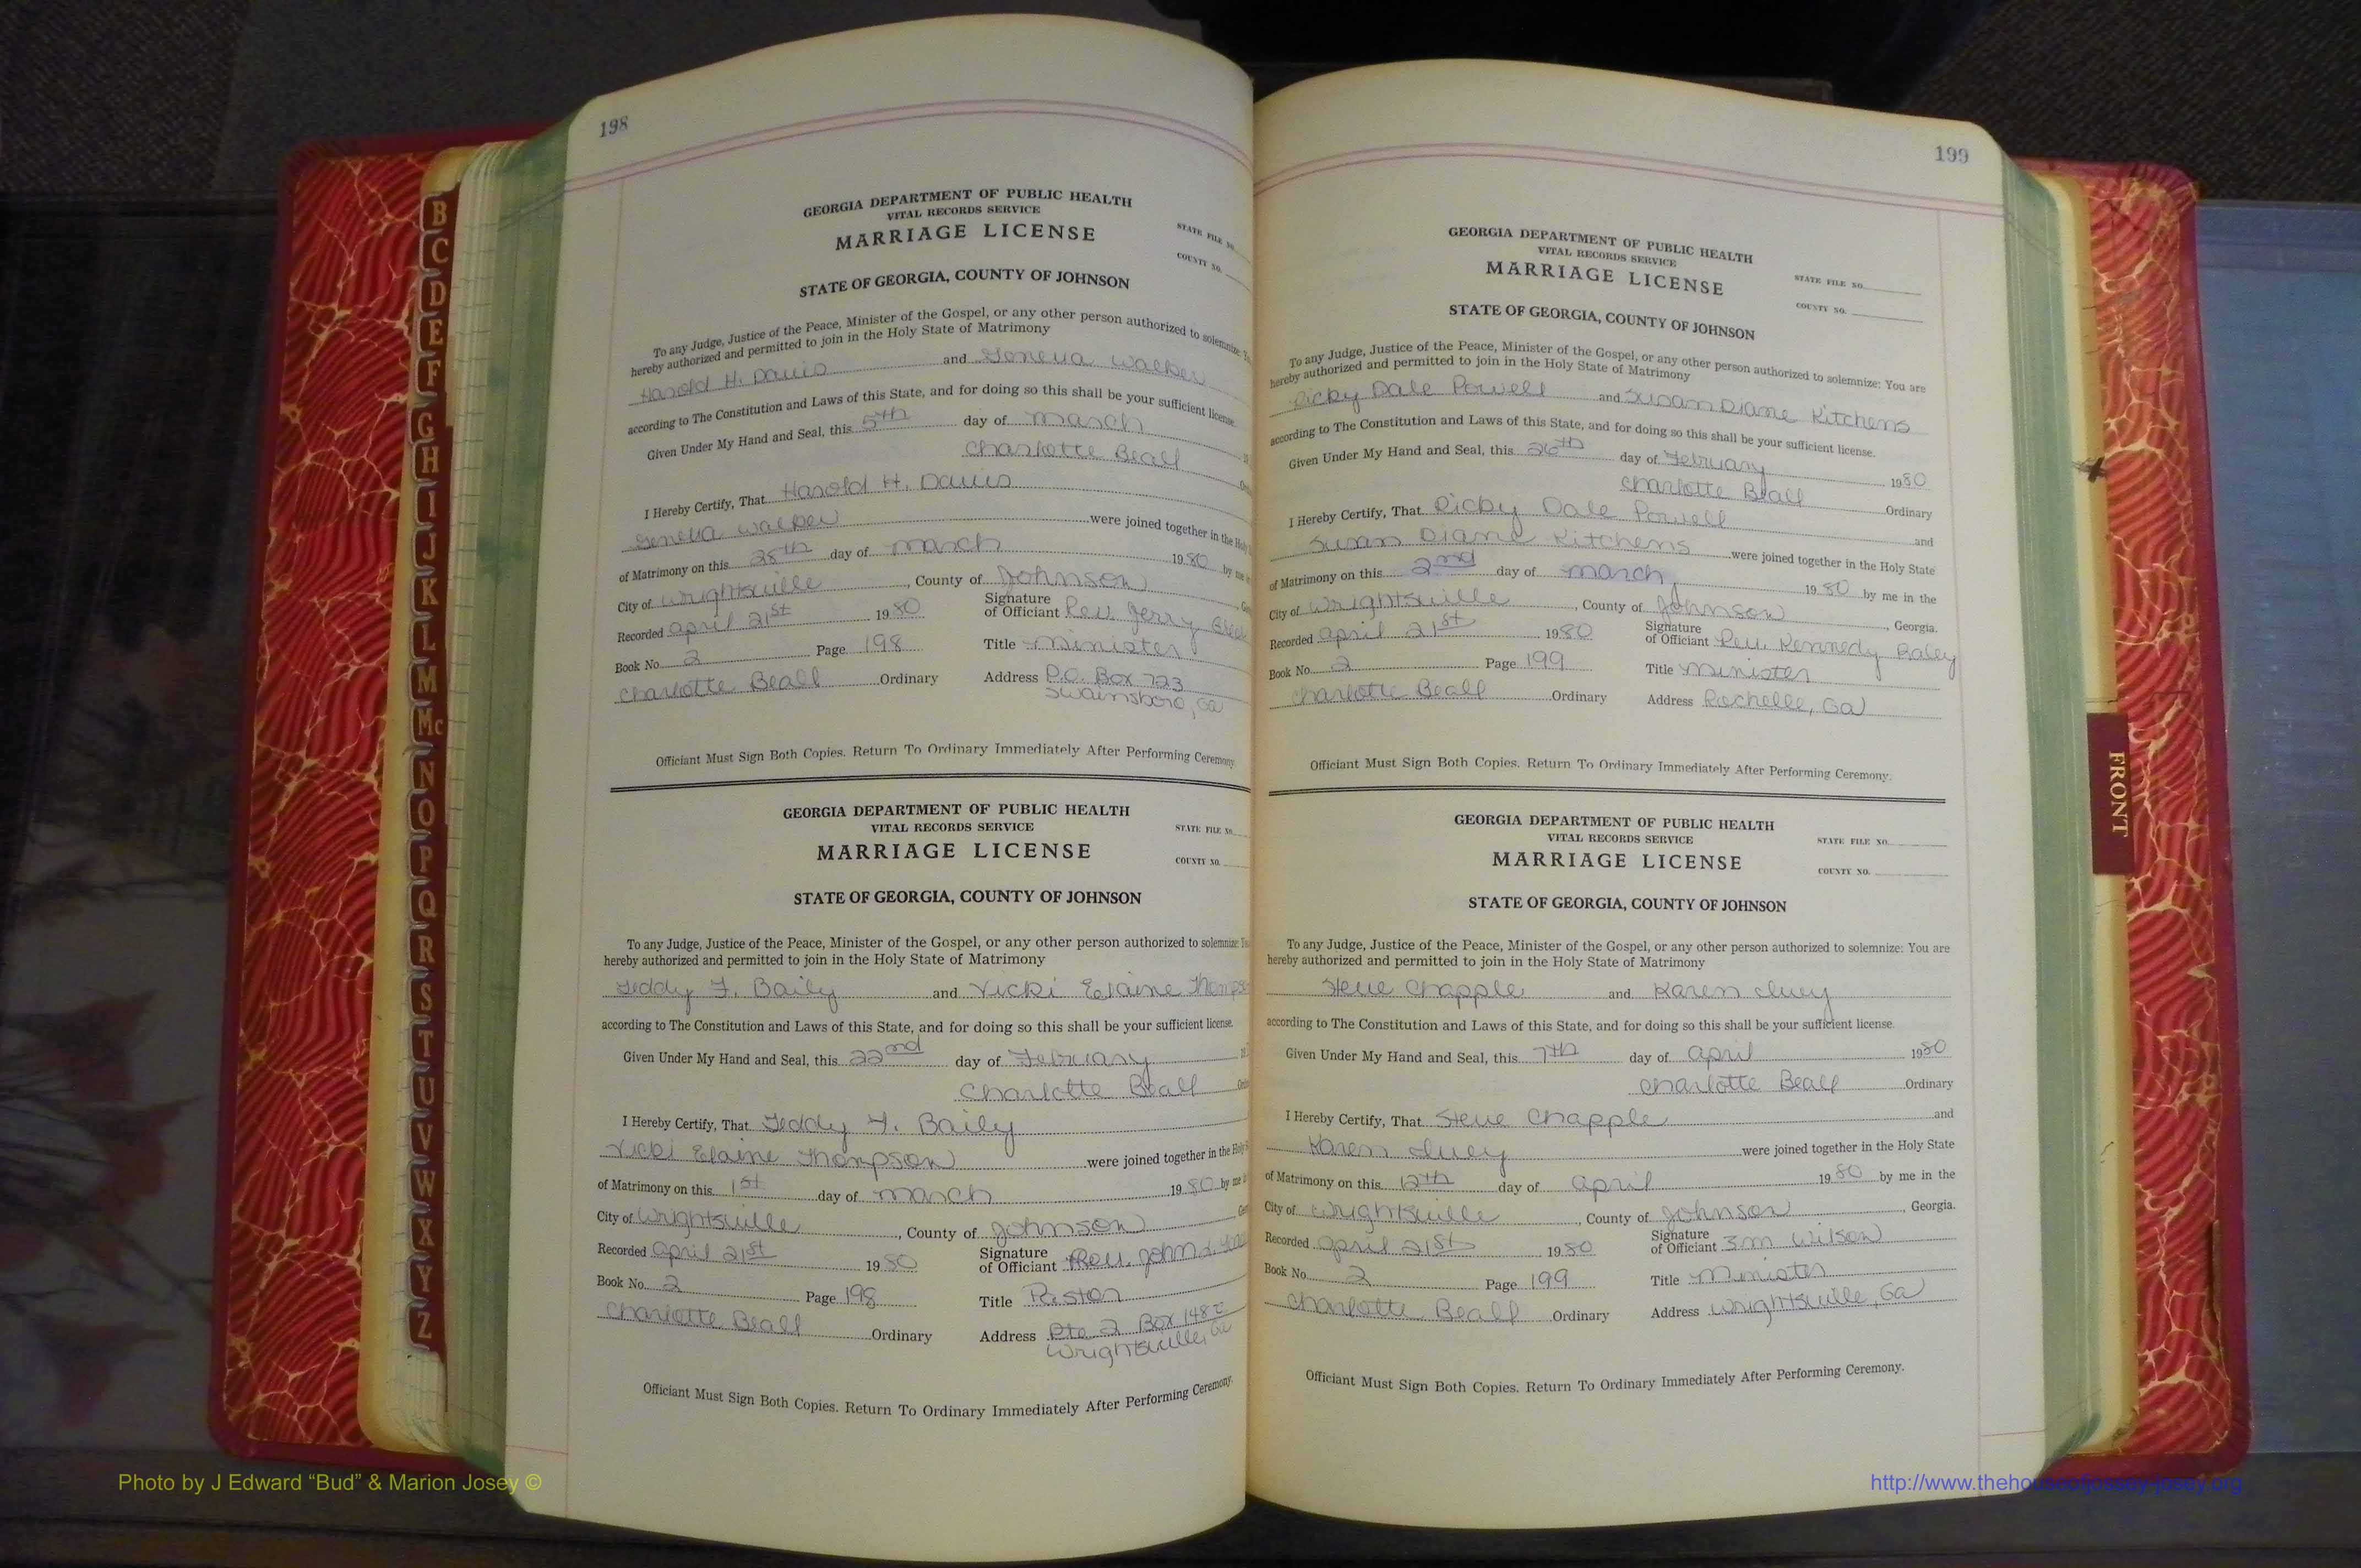 198
GEORGIA DEPARTMENT OF PUBLIC HEALTH
VITAL RECORDS SERVICE
MARRIAGE LICENSE
STATE FILE NO.
COUNTY NO.
STATE OF GEORGIA, COUNTY OF JOHNSON
To any Judge, Justice of the Peace, Minister of the Gospel, or any other person authorized to solemnize:
hereby authorized and permitted to join in the Holy State of Matrimony
Harold H. Davis and Geneva Walker
according to The Constitution and Laws of this State, and for doing so this shall be your sufficient license.
Given Under My Hand and Seal, this 5th day of March
Charlotte Beall
I Hereby Certify, That Harold H. Davis
Geneva Walker were joined together in the
of Matrimony on this 28th day of March 1980 by me
City of Wrightsville, County of Johnson
Recorded April 21st 1980 Signature of Officiant Rev. Jerry
Book No. 2 Page 198 Title Minister
Charlotte Beall Ordinary Address P.O. Box 723
Swainsboro, Ga
Officiant Must Sign Both Copies. Return To Ordinary Immediately After Performing Ceremony.
GEORGIA DEPARTMENT OF PUBLIC HEALTH
VITAL RECORDS SERVICE
MARRIAGE LICENSE
STATE FILE NO.
COUNTY NO.
STATE OF GEORGIA, COUNTY OF JOHNSON
To any Judge, Justice of the Peace, Minister of the Gospel, or any other person authorized to solemnize:
hereby authorized and permitted to join in the Holy State of Matrimony
Teddy F. Baily and Vicki Elaine Thompson
according to The Constitution and Laws of this State, and for doing so this shall be your sufficient license.
Given Under My Hand and Seal, this 22nd day of February
Charlotte Beall
I Hereby Certify, That Teddy F. Baily
Vicki Elaine Thompson were joined together in the
of Matrimony on this 1st day of March 1980 by me
City of Wrightsville, County of Johnson
Recorded April 21st 1980 Signature of Officiant Rev. John L.
Book No. 2 Page 198 Title Pastor
Charlotte Beall Ordinary Address Rte 2 Box 148
Wrightsville, Ga
Officiant Must Sign Both Copies. Return To Ordinary Immediately After Performing Ceremony.
199
GEORGIA DEPARTMENT OF PUBLIC HEALTH
VITAL RECORDS SERVICE
MARRIAGE LICENSE
STATE FILE NO.
COUNTY NO.
STATE OF GEORGIA, COUNTY OF JOHNSON
To any Judge, Justice of the Peace, Minister of the Gospel, or any other person authorized to solemnize: You are
hereby authorized and permitted to join in the Holy State of Matrimony
Ricky Dale Powell and Susan Diane Kitchens
according to The Constitution and Laws of this State, and for doing so this shall be your sufficient license.
Given Under My Hand and Seal, this 26th day of February 1980
Charlotte Beall Ordinary
I Hereby Certify, That Ricky Dale Powell and
Susan Diane Kitchens were joined together in the Holy State
of Matrimony on this 2nd day of March, 1980 by me in the
City of Wrightsville, County of Johnson, Georgia.
Recorded April 21st 1980 Signature of Officiant Rev. Kennedy Raley
Book No. 2 Page 199 Title Minister
Charlotte Beall Ordinary Address Rochelle, Ga
Officiant Must Sign Both Copies. Return To Ordinary Immediately After Performing Ceremony.
GEORGIA DEPARTMENT OF PUBLIC HEALTH
VITAL RECORDS SERVICE
MARRIAGE LICENSE
STATE FILE NO.
COUNTY NO.
STATE OF GEORGIA, COUNTY OF JOHNSON
To any Judge, Justice of the Peace, Minister of the Gospel, or any other person authorized to solemnize: You are
hereby authorized and permitted to join in the Holy State of Matrimony
Steve Chapple and Karen Ivey
according to The Constitution and Laws of this State, and for doing so this shall be your sufficient license.
Given Under My Hand and Seal, this 7th day of April 1980
Charlotte Beall Ordinary
I Hereby Certify, That Steve Chapple and
Karen Ivey were joined together in the Holy State
of Matrimony on this 12th day of April 1980 by me in the
City of Wrightsville, County of Johnson, Georgia.
Recorded April 21st 1980 Signature of Officiant Wilson
Book No. 2 Page 199 Title Minister
Charlotte Beall Ordinary Address Wrightsville, Ga
Officiant Must Sign Both Copies. Return To Ordinary Immediately After Performing Ceremony.
B
C
D
E
F
G
H
I
J
K
L
M
Mc
N
O
P
Q
R
S
T
U
V
W
X
Y
Z
FRONT
Photo by J Edward “Bud” & Marion Josey ©
http://www.thehouseofjossey-josey.org